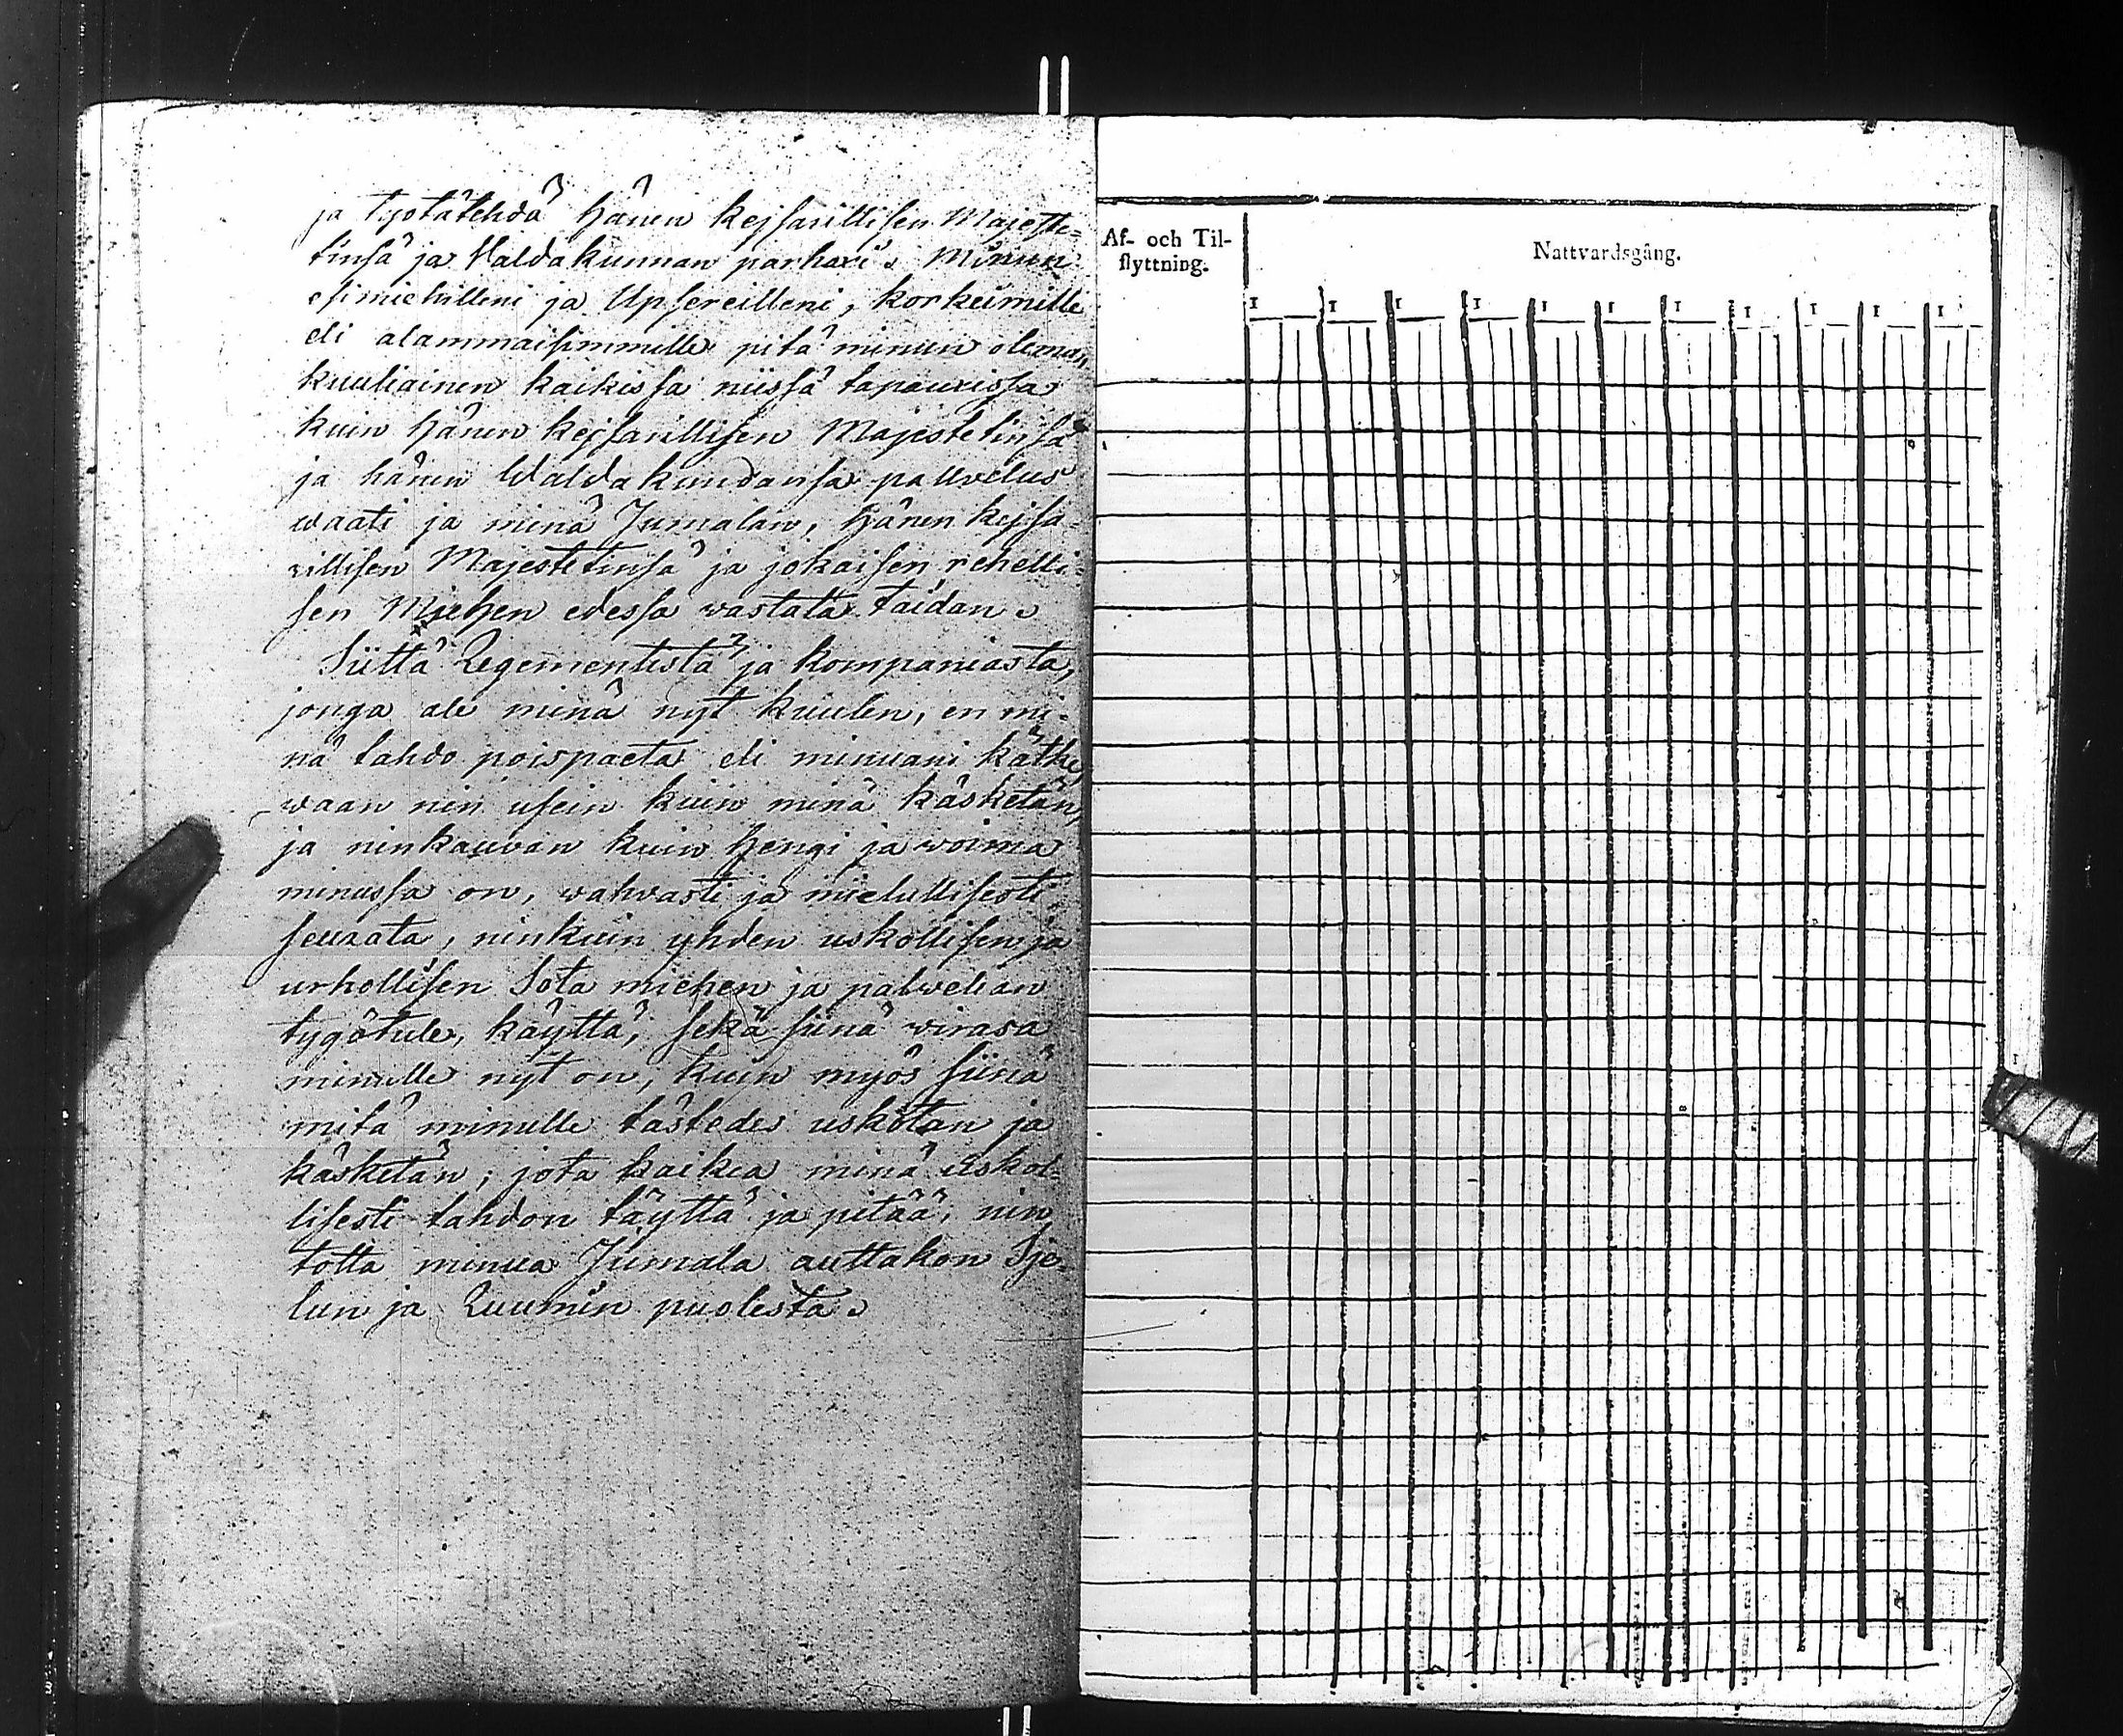 ja työtätehdä Hänen Keisarillisen Majeste-
tinsä ja Waldakunnan parhaxi. Minun
esimiehilleni ja Upsereilleni, korkeimille
eli alammaisimmille pitä minun oleman
kuuliainen kaikissa niissä tapauxissa
kuin Hänen Keisarillisen Majestetinsä
ja hänen Waldakundansa palvelus
waati ja minä Jumalan, Hänen Keisa-
rillisen Majestetinsä ja jokaisen rehelli-
sen Miehen edessä wastata taidan.
Siittä Regementistä ja Kompaniasta,
jonga ale minä nyt kuulen, en mi-
nä tahdo poispaeta eli minuani kätke,
waan nin usein kuin minä käsketän,
ja ninkauwan kuin Hengi ja woima
minussa on, wahwasti ja mielullisesti
seurata, ninkuin yhden uskollisen ja
urhollisen Sota miehen ja palwelian
tygötule, käyttä, sekä siinä wirasa
minulle nyt on, kuin myös siinä
mitä minulle tästedes uskotan ja
käsketän; jota kaikea minä uskol-
lisesti tahdon täyttä ja pitää, nin
totta minua Jumala auttakon Sje-
lun ja Ruumin puolesta.
Af- och Til-
flyttning.
Nattvardsgång.
1 1 1 1 1 1 1 1 1 1 1